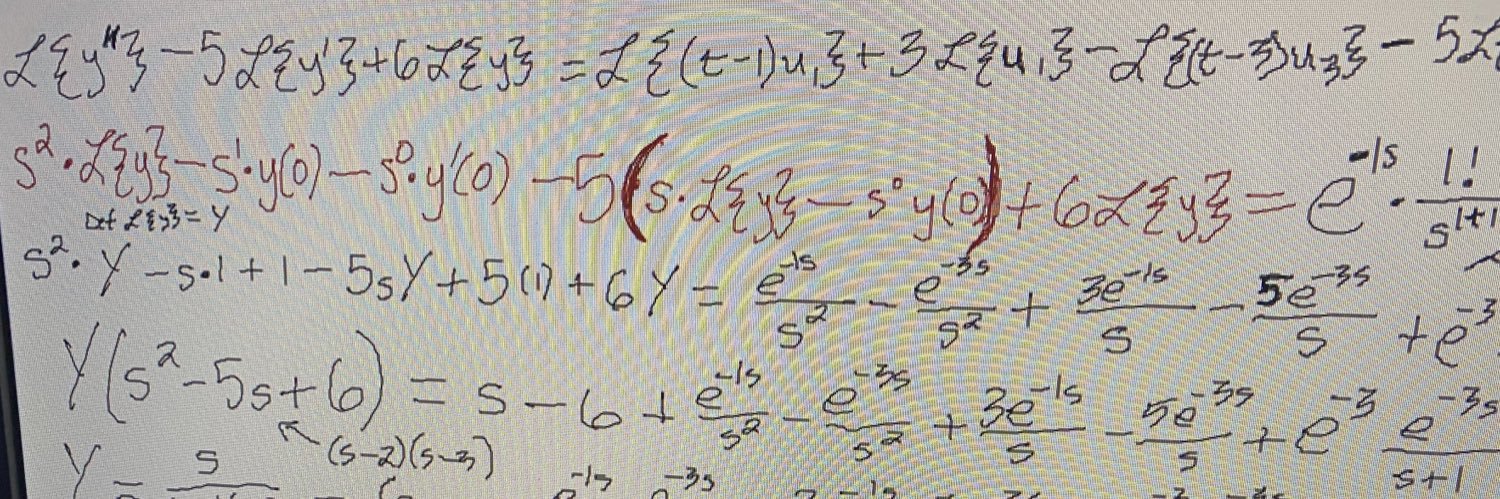 ℒ{y''} - 5ℒ{y'} + 6ℒ{y} = ℒ{(t-1)u₁} + 3ℒ{u₁} - ℒ{(t-3)u₃} - 5ℒ{
s²·ℒ{y} - s¹·y(0) - s⁰·y'(0) - 5(s·ℒ{y} - s⁰y(0)) + 6ℒ{y} = e^(-1s) · 1!/s^(1+1)
Def ℒ{y} = Y
s²·Y - s·1 + 1 - 5sY + 5(1) + 6Y = e^(-1s)/s² - e^(-3s)/s² + 3e^(-1s)/s - 5e^(-3s)/s + e^(-3
Y(s² - 5s + 6) = s - 6 + e^(-1s)/s² - e^(-3s)/s² + 3e^(-1s)/s - 5e^(-3s)/s + e^(-3) e^(-3s)/(s+1)
↖ (s-2)(s-3)
Y = s